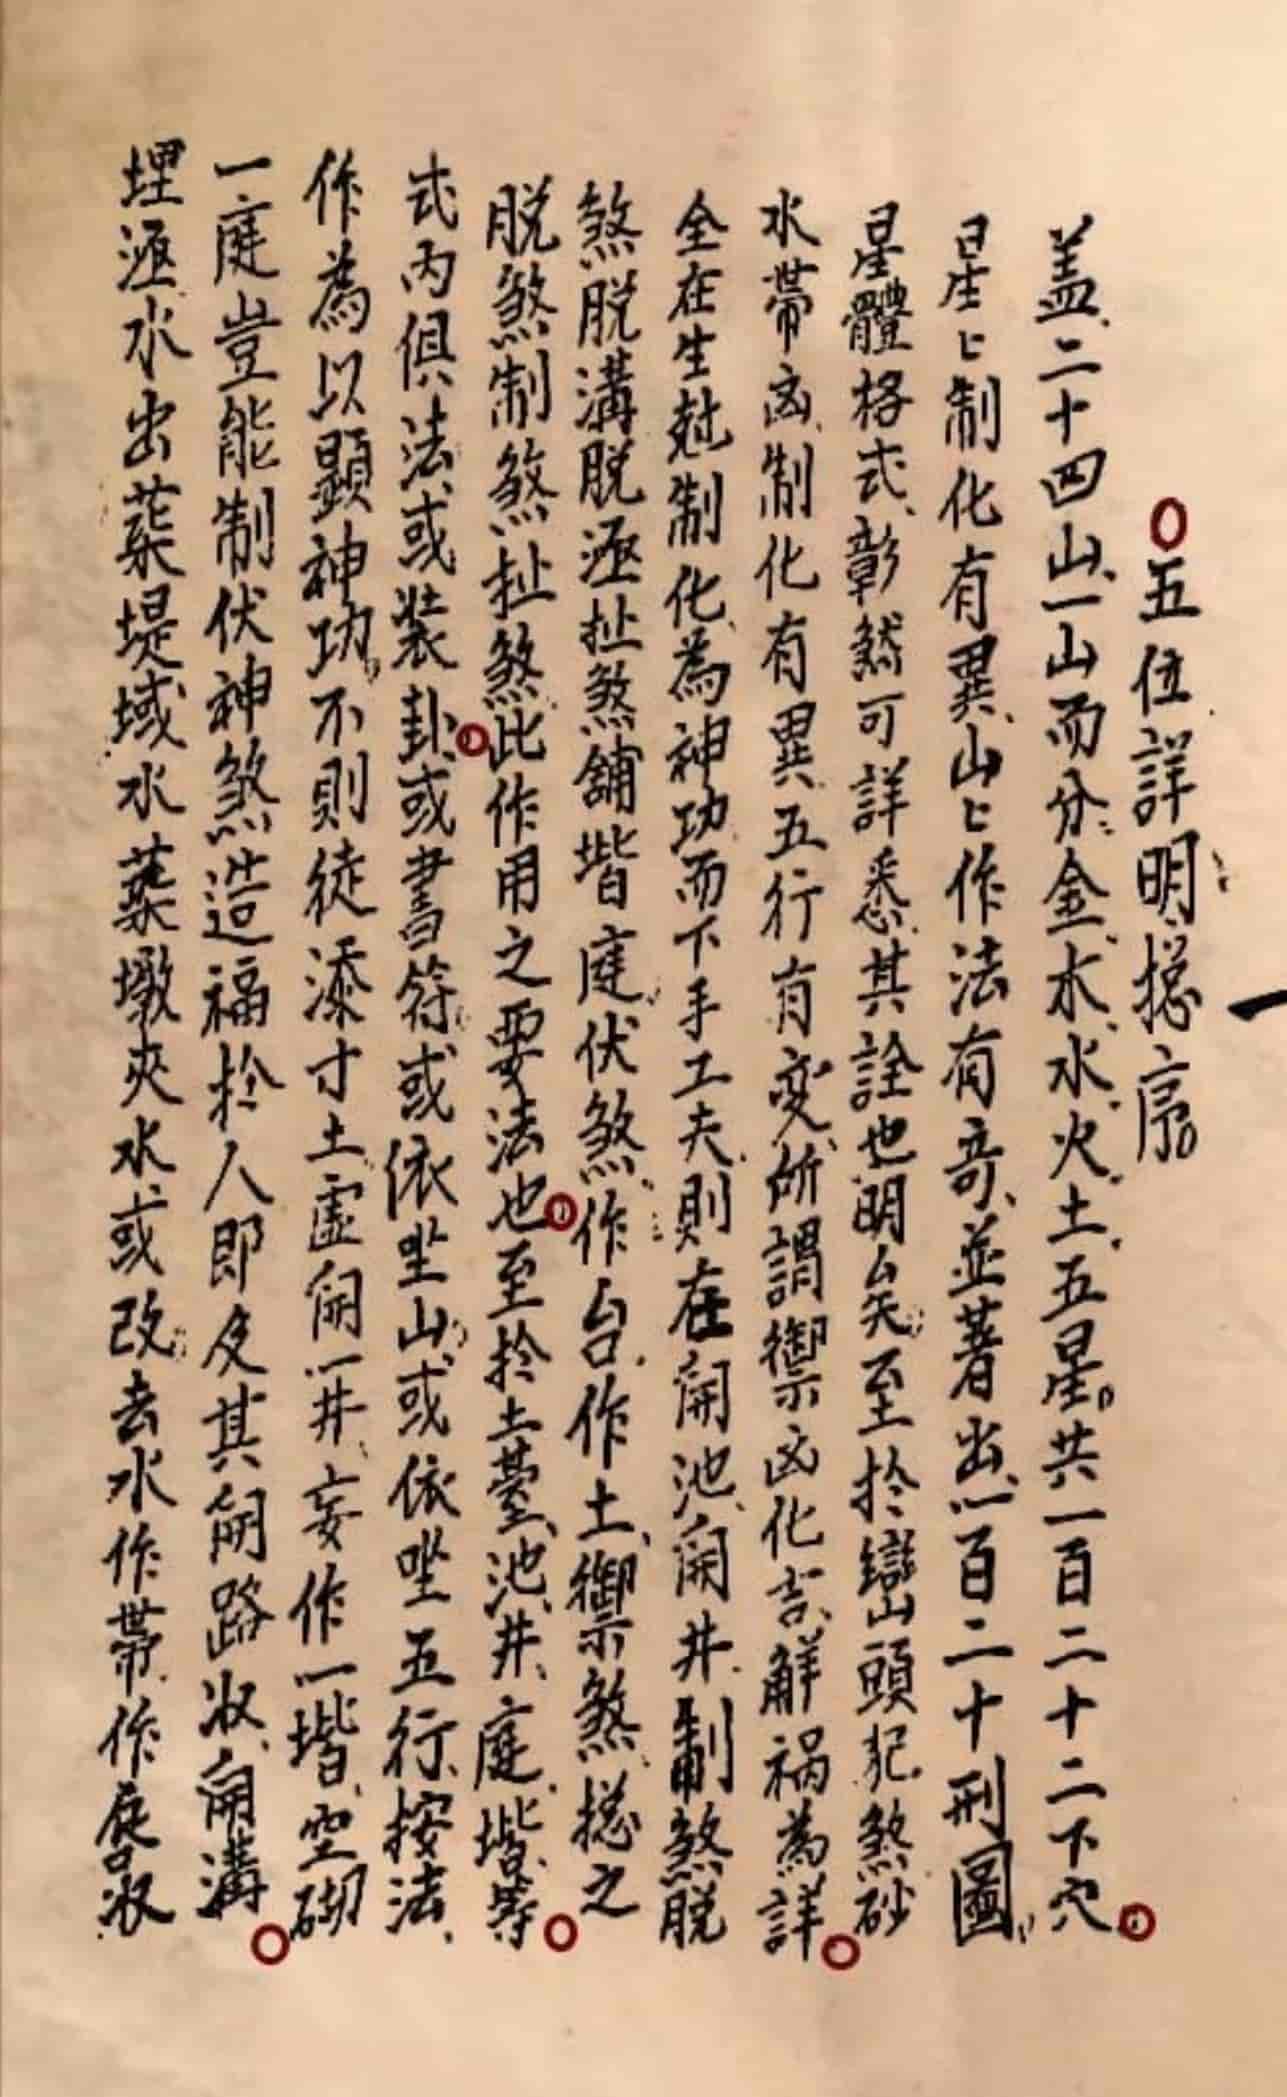 五位詳明摠序
盖二十四山一山而分金木水火土五星共一百二十二下穴
星〻制化有異山〻作法有奇並著出一百二十刑圖
星體格式彰然可詳悉其詮也明矣至於巒頭犯煞砂
水帶凶制化有異五行有变所謂禦凶化吉解禍為詳
全在生尅制化為神功而下手工夫則在開池開井制煞脫
煞脫溝脫逕扯煞舖堦庭伏煞作台作土禦煞摠之
脫煞制煞扯煞此作用之要法也至於土臺池井庭堦等
式丙俱法或裝卦或書符或依坐山或依坐五行按法
作為以顕神功不則徒添寸土虛開一井妄作一堦空砌
一庭豈能制伏神煞造福於人即及其開路収開溝
埋逕水出築堤域水築墩夾水或改去水作帶作唇収